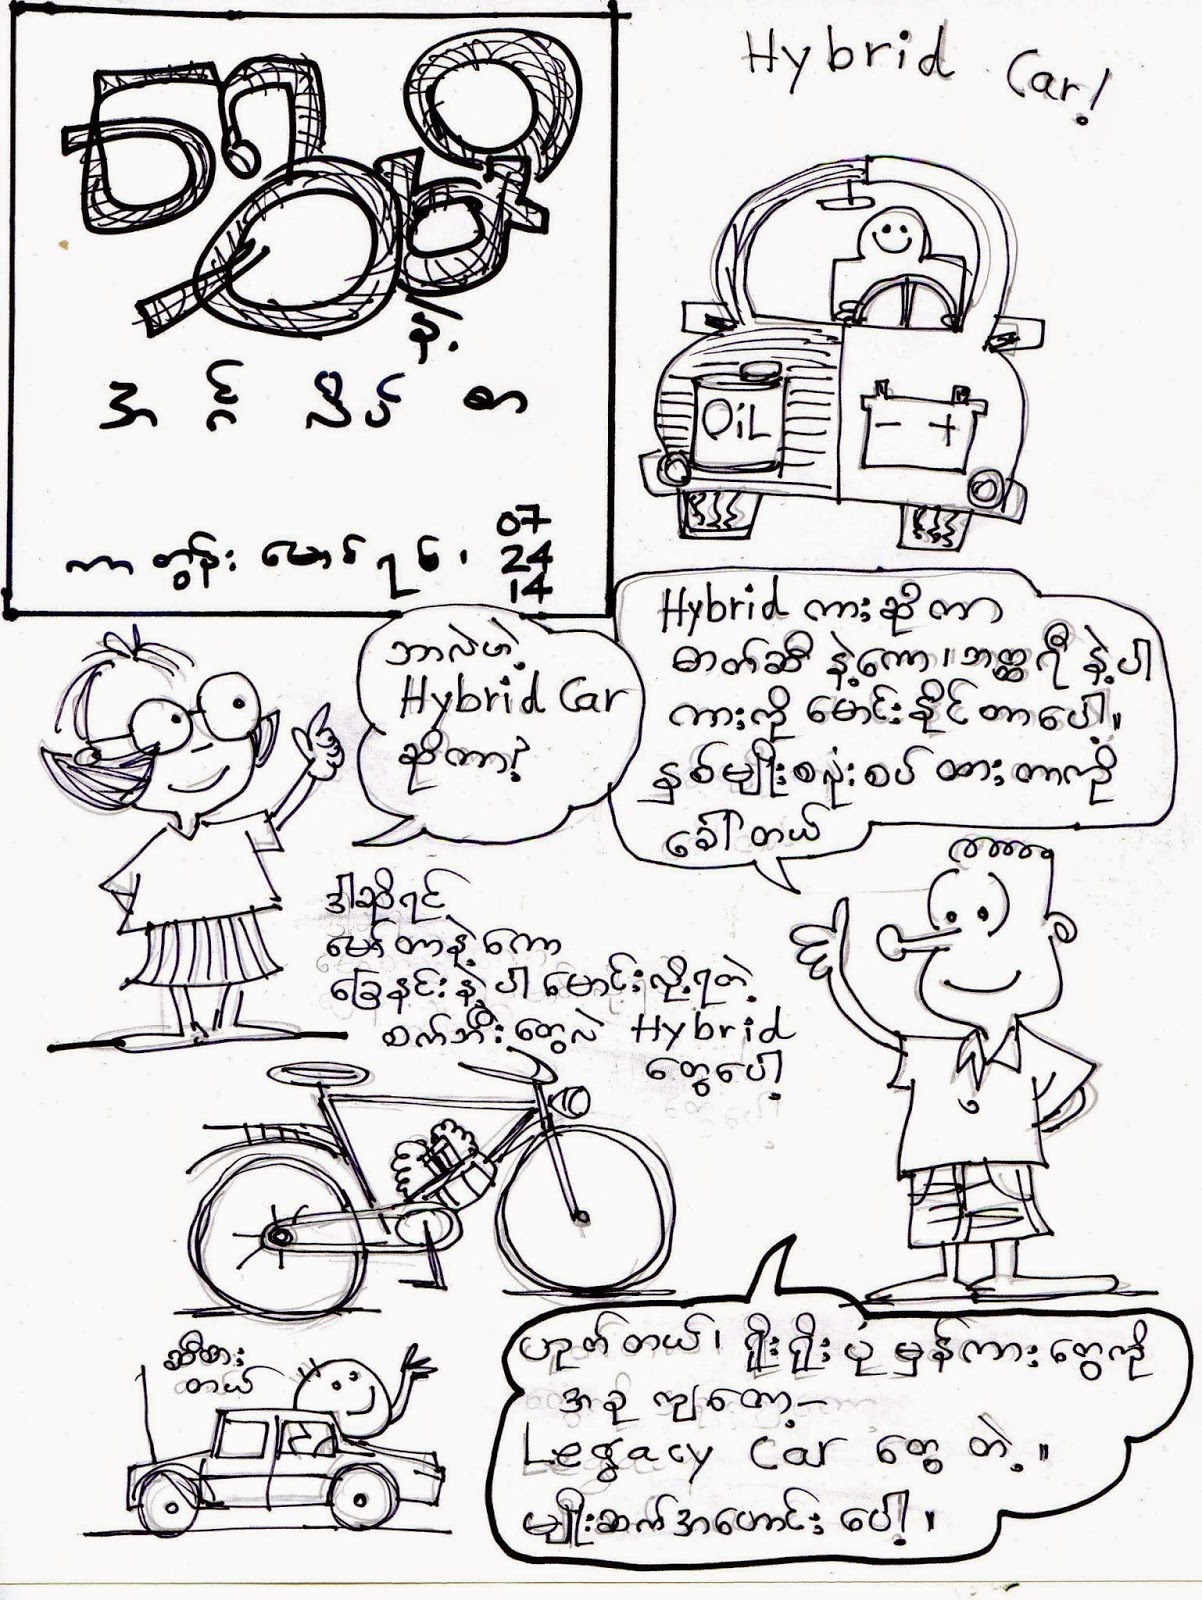 Hybrid Car!
နဲ့
အင်္ဂလိပ်စာ
ကာတွန်း မောင်ရစ်၊
07
24
14
OiL
- +
ဘာလဲဟဲ့
Hybrid Car
ဆိုတာ?
Hybrid ကားဆိုတာ
ဓာတ်ဆီ နဲ့ကော၊ ဘတ္ထရီ နဲ့ပါ
ကားကို မောင်းနိုင်တာပေါ့။
နှစ်မျိုးစလုံးစပ် ထားတာကို
ခေါ်တယ်
ဒါဆိုရင်
မော်တာနဲ့ကော
ခြေနင်းနဲ့ပါ မောင်းလို့ရတဲ့
စက်ဘီးတွေလဲ Hybrid
တွေပေါ့
ဆီစား
တယ်
ဟုတ်တယ်၊ ရိုးရိုးပုံမှန်ကားတွေကို
အခုကျတော့–
Legacy Car တွေ တဲ့။
မျိုးဆက်အဟောင်းပေါ့။